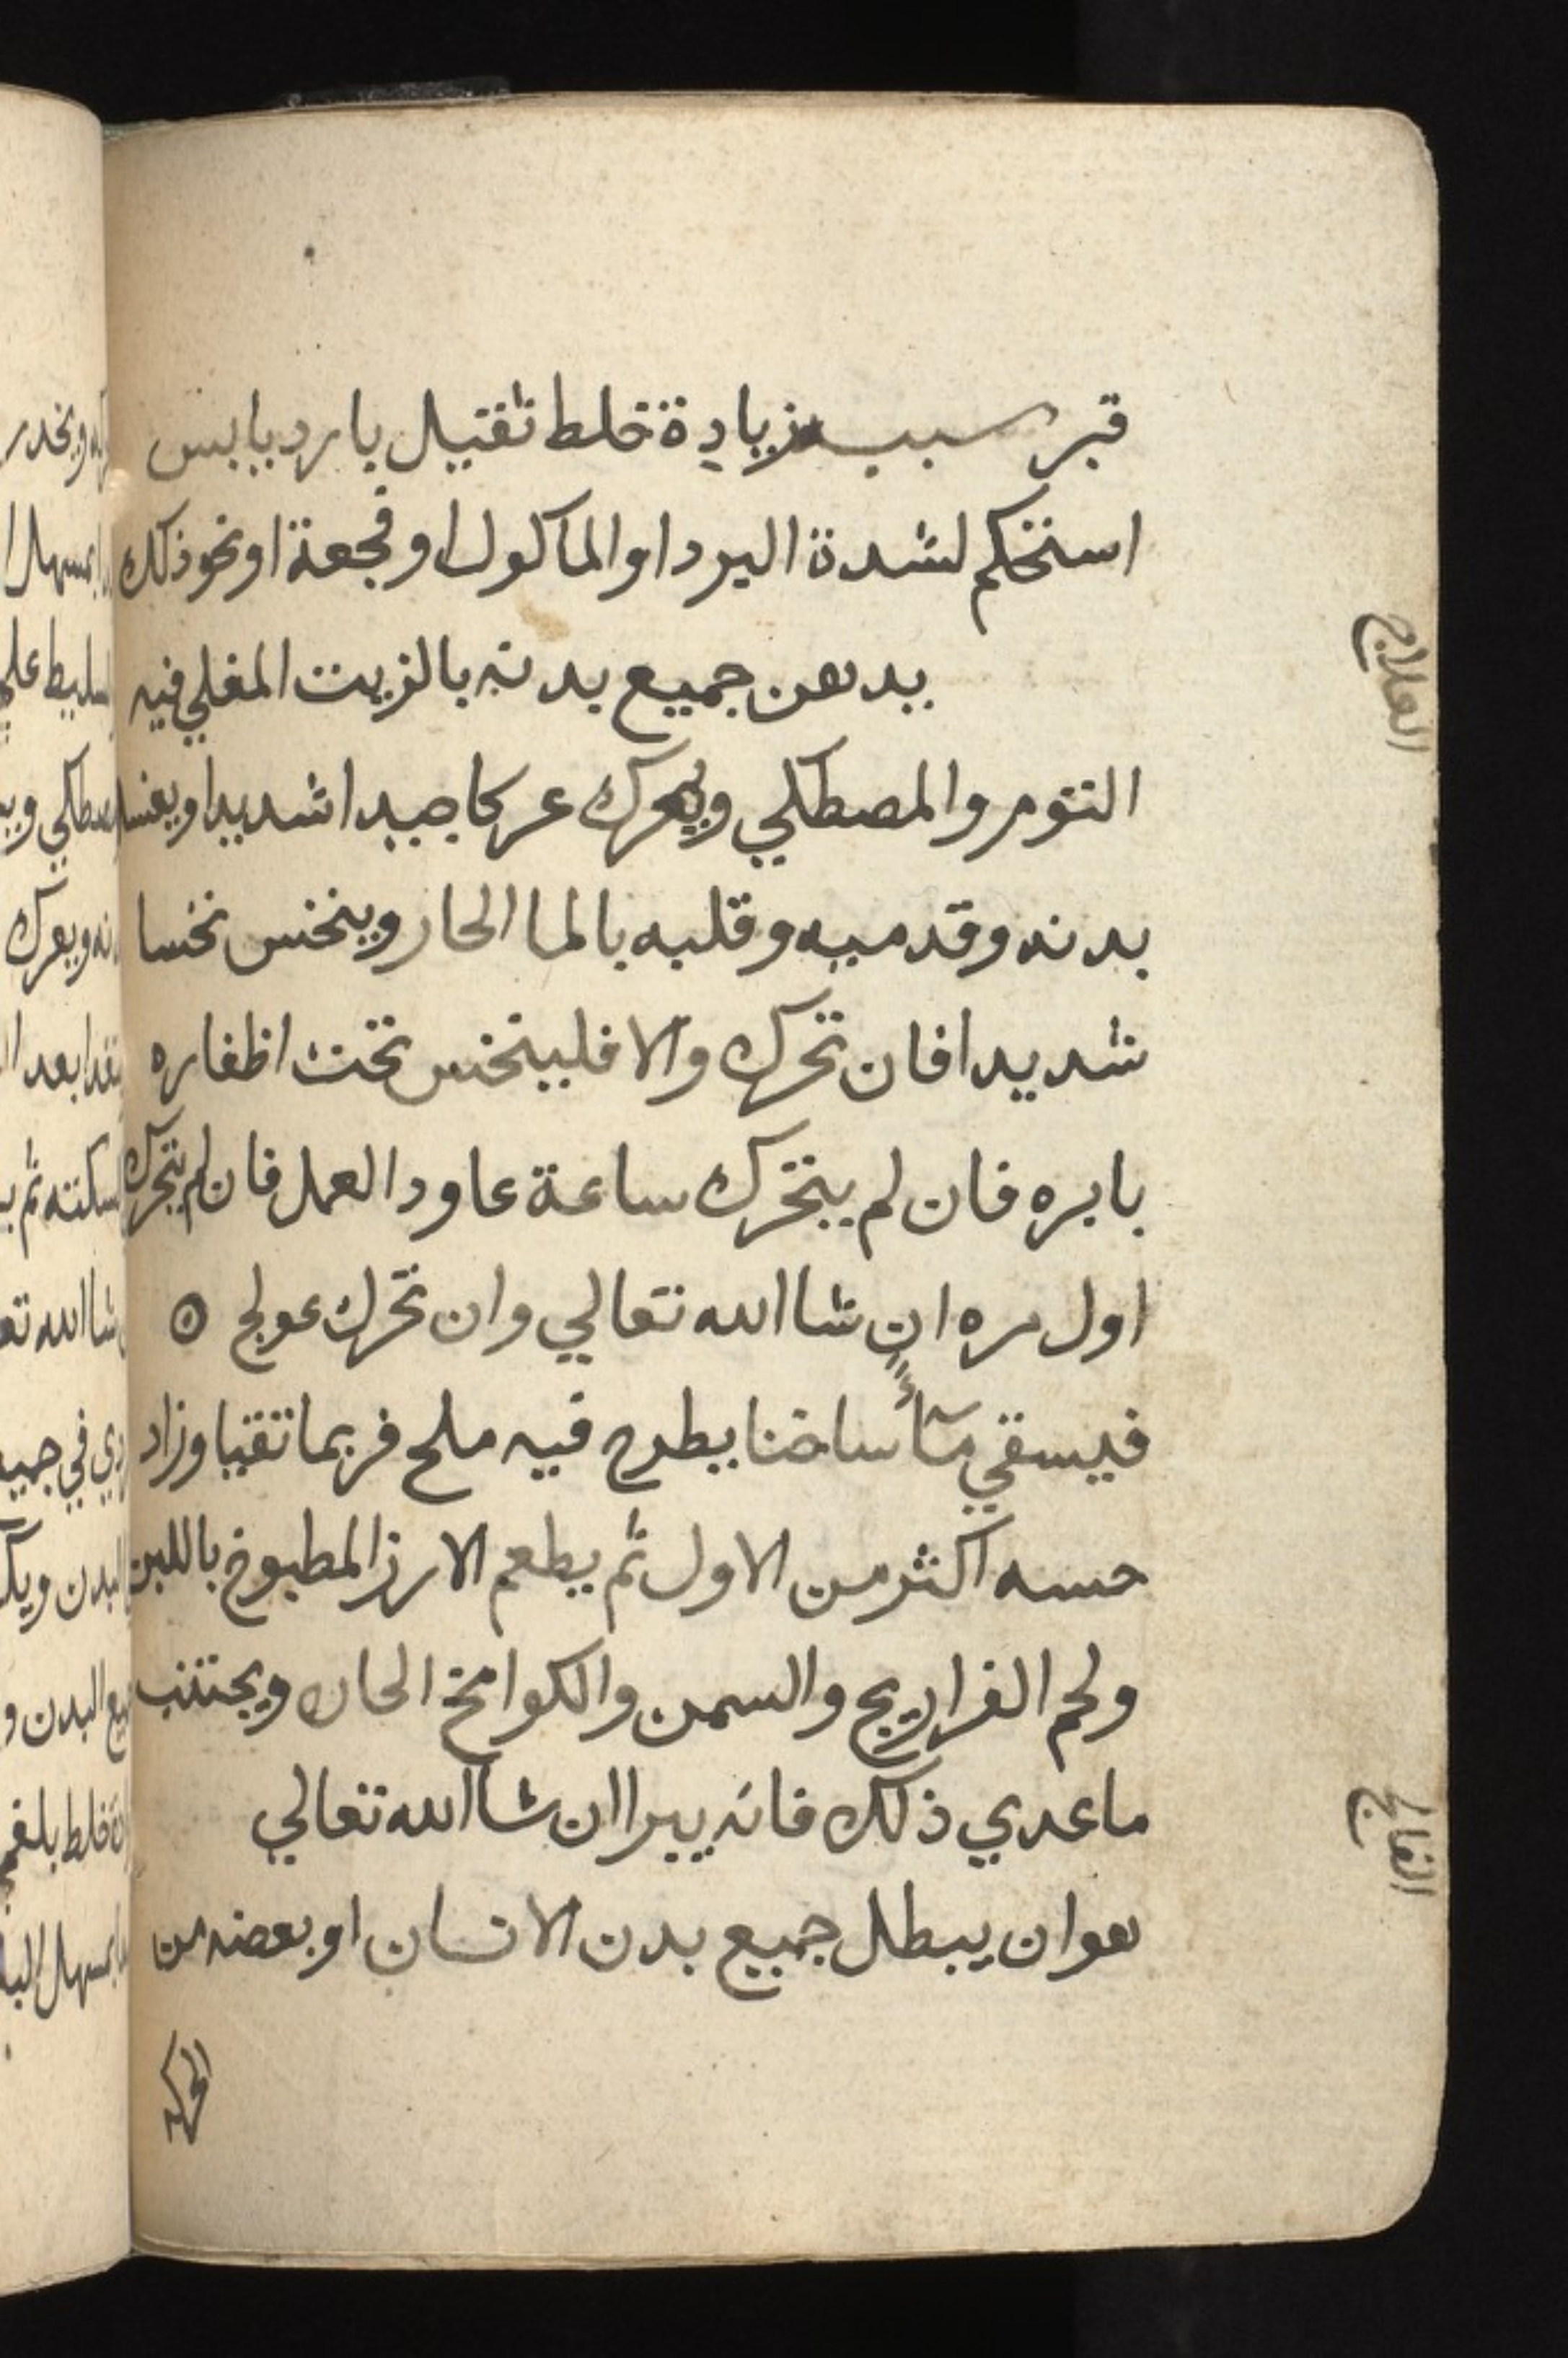 قبر سبب زيادة خلط ثقيل بارد يابس
استحكم لشدة البرد او الماكول او فجعة او نحو ذلك
العلاج
يدهن جميع بدنه بالزيت المغلي فيه
الثوم والمصطكي ويعرك عركا جيدا شديدا ويغسل
بدنه وقدميه وقلبه بالما الحار وينخس نخسا
شديدا فان تحرك والا فلينخس تحت اظفاره
بابره فان لم يتحرك ساعة عاود العمل فان لم يتحرك
اول مره ان شا الله تعالي وان تحرك عولج
فيسقي مآءً ساخنا يطرح فيه ملح فربما تقيا وزاد
حسه اكثر من الاول ثم يطعم الارز المطبوخ باللبن
ولحم الفراريج والسمن والكوامخ الحاره ويجتنب
ما عدي ذلك فانه يبرا ان شا الله تعالي
الفالج
هو ان يبطل جميع بدن الانسان او بعضه من
الحركه